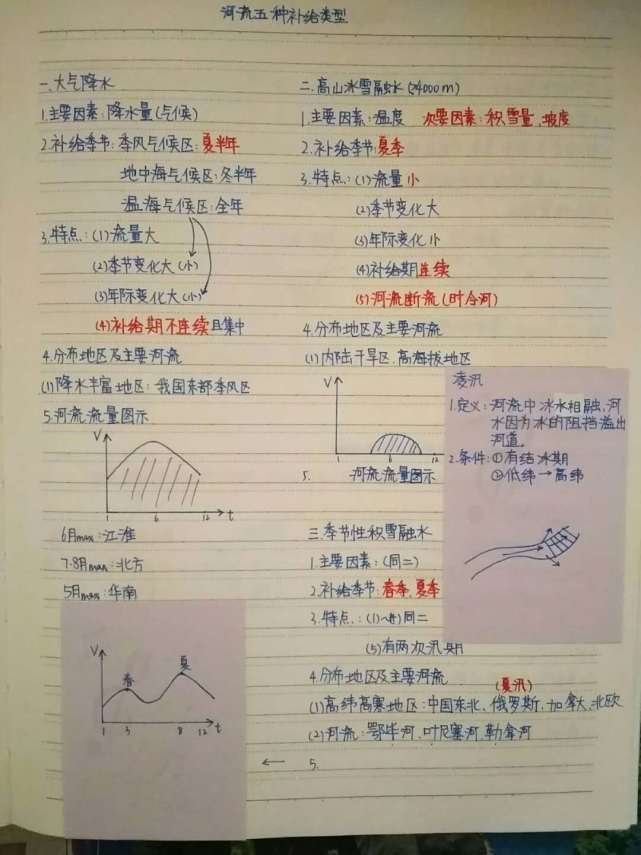 河流五种补给类型
一.大气降水
1.主要因素:降水量(气候)
2.补给季节:季风气候区:夏半年
地中海气候区:冬半年
温.海气候区:全年
3.特点:(1)流量大
(2)季节变化大(小)
(3)年际变化大(小)
(4)补给期不连续且集中
4.分布地区及主要河流
(1)降水丰富地区:我国东部季风区
5.河流流量图示
V
1 6 12 t
6月max:江淮
7.8月max:北方
5月max:华南
V
春 夏
1 3 8 12 t
二.高山冰雪融水(>4000m)
1.主要因素:温度 次要因素:积雪量、坡度
2.补给季节:夏季
3.特点:(1)流量小
(2)季节变化大
(3)年际变化小
(4)补给期连续
(5)河流断流(时令河)
4.分布地区及主要河流
(1)内陆干旱区、高海拔地区
V
1 6 12
5. 河流流量图示
三.季节性积雪融水
1.主要因素:(同二)
2.补给季节:春季、夏季
3.特点:(1)~(4)同二
(5)有两次汛期
4.分布地区及主要河流
(夏汛)
(1)高纬高寒地区:中国东北、俄罗斯、加拿大、北欧
(2)河流:鄂毕河、叶尼塞河、勒拿河
← 5.
凌汛
1.定义:河流中冰水相融,河
水因为冰的阻挡溢出
河道。
2.条件:①有结冰期
②低纬→高纬